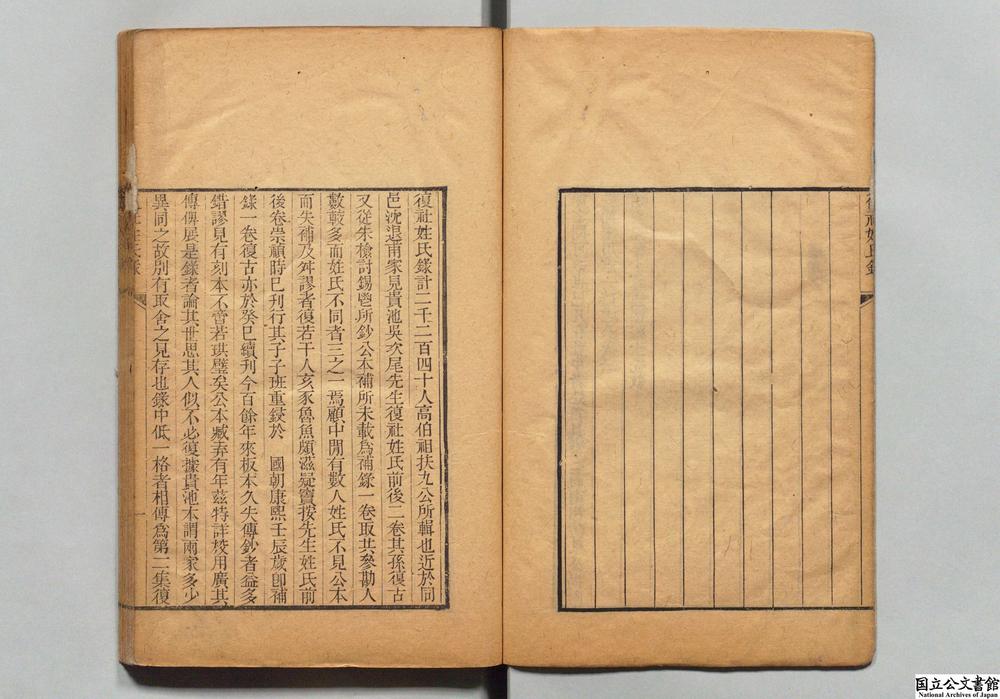 復社姓氏錄
復社姓氏錄計二千二百四十人高伯祖扶九公所輯也近於同
邑沈退甫家見貴池吳次尾先生復社姓氏前後二卷其孫復古
又從朱檢討錫鬯所鈔公本補所未載爲補錄一卷取其參勘人
數較多而姓氏不同者三之一焉顧中閒有數人姓氏不見公本
而失補及舛謬者復若干人亥豕魯魚頗滋疑竇按先生姓氏前
後卷崇禎時已刊行其子子班重鋟於 國朝康熙壬辰歲卽補
錄一卷復古亦於癸巳續刊今百餘年來板本久失傳鈔者益多
錯謬見有刻本不啻若珙璧矣公本臧弆有年茲特詳挍用廣其
傳俾展是錄者論其世思其人似不必復據貴池本謂兩家多少
異同之故別有取舍之見存也錄中低一格者相傳爲第二集復
一
国立公文書館
National Archives of Japan